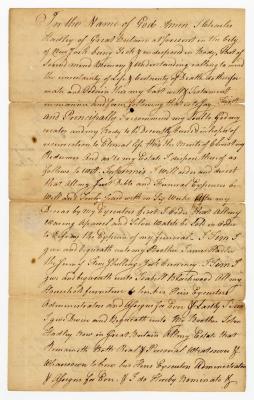 In the Name of God Amen I Charles
Hadley of Great Britain at present in the City
of New York being Sick & indisposed in Body, But of
Sound mind Memory & Understanding calling to mind
the uncertainty of Life & Certainty of Death do therefore
make and Ordain this my Last Will & Testament
in manner and form following that is to say First
and Principally I recommend my Soul to God my
creator and my Body to be decently buried in hopes of
resurrection to Eternal Life thro' the Merits of Christ my
Redeemer And as to my Estate I dispose thereof as
follows to wit. Imprimis I Will order and direct
that All my Just Debts and Funeral Expences be
Well and Truly paid with in Six Weeks after my
Decease by my Executors first I Order that All my
Wearing Apparel and Silver Watch be Sold in order
to Defray the Expence of my funeral I Item I
give and Bequeath unto my Brother
the Sum of Five Shillings York Currency I Item I
give and bequeath unto Blackwood All my
Household furniture to her Heirs Executors
Administrators and Assigns for Ever & Lastly I
give Devise and Bequeath unto My Brother
Hadley Now in Great Britain All my Estate that
Remaineth Both Real & Personal Whatsoever &
Wheresoever to him his Heirs Executors Administrators
& Assigns for Ever & I do Hereby Nominate &